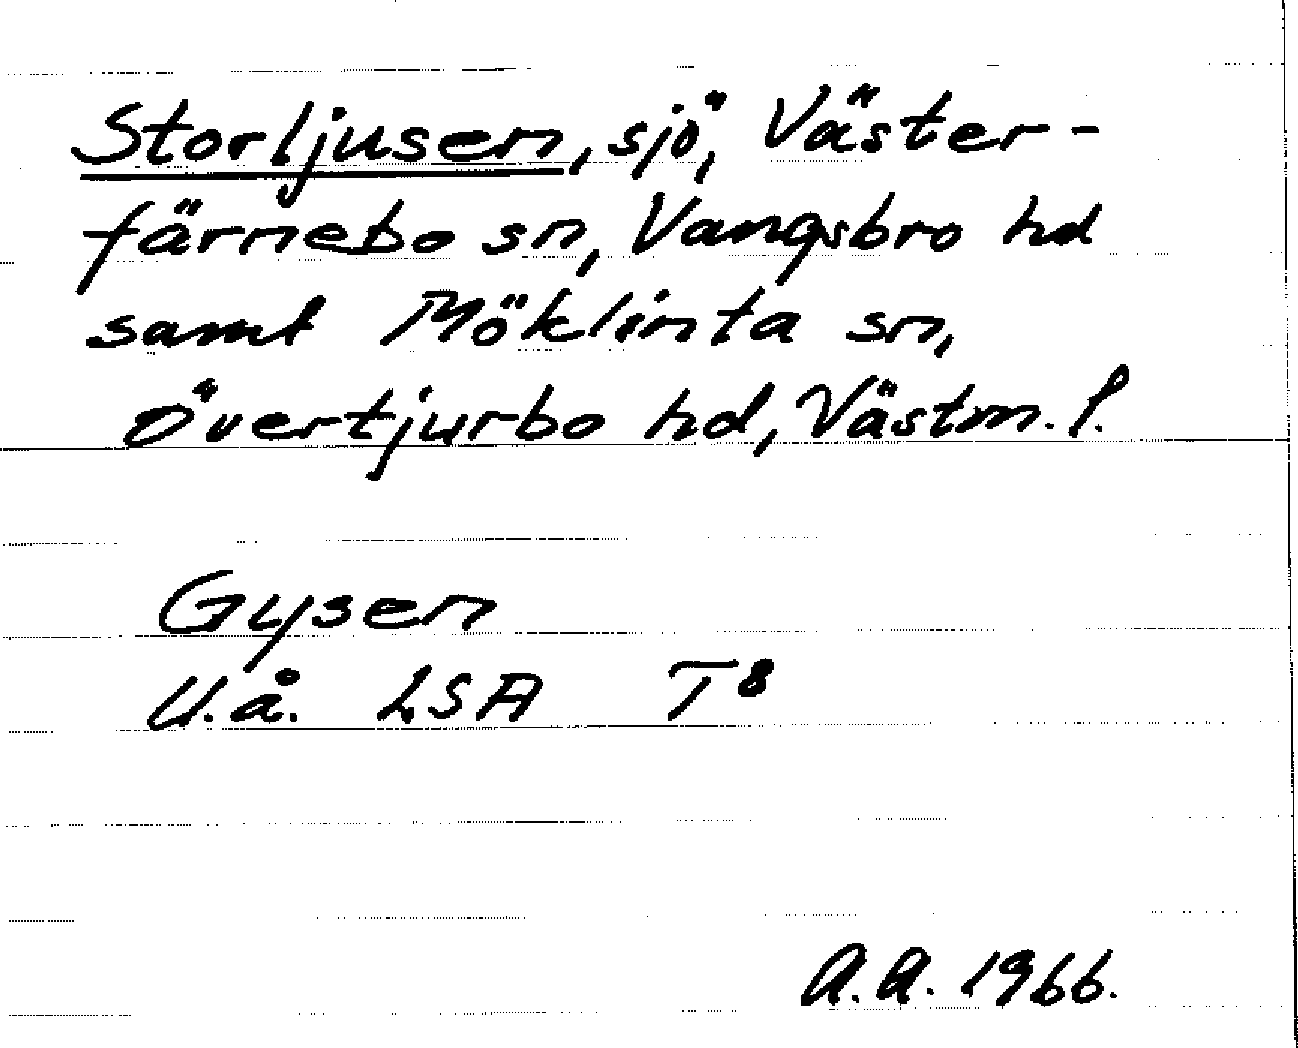 Storljusen, sjö, Väster-
färnebo sn, Vangsbro hd
samt Möklinta sn,
Övertjurbo hd, Västm. l.
Gysen
U.å. LSA T8
A.A. 1966.